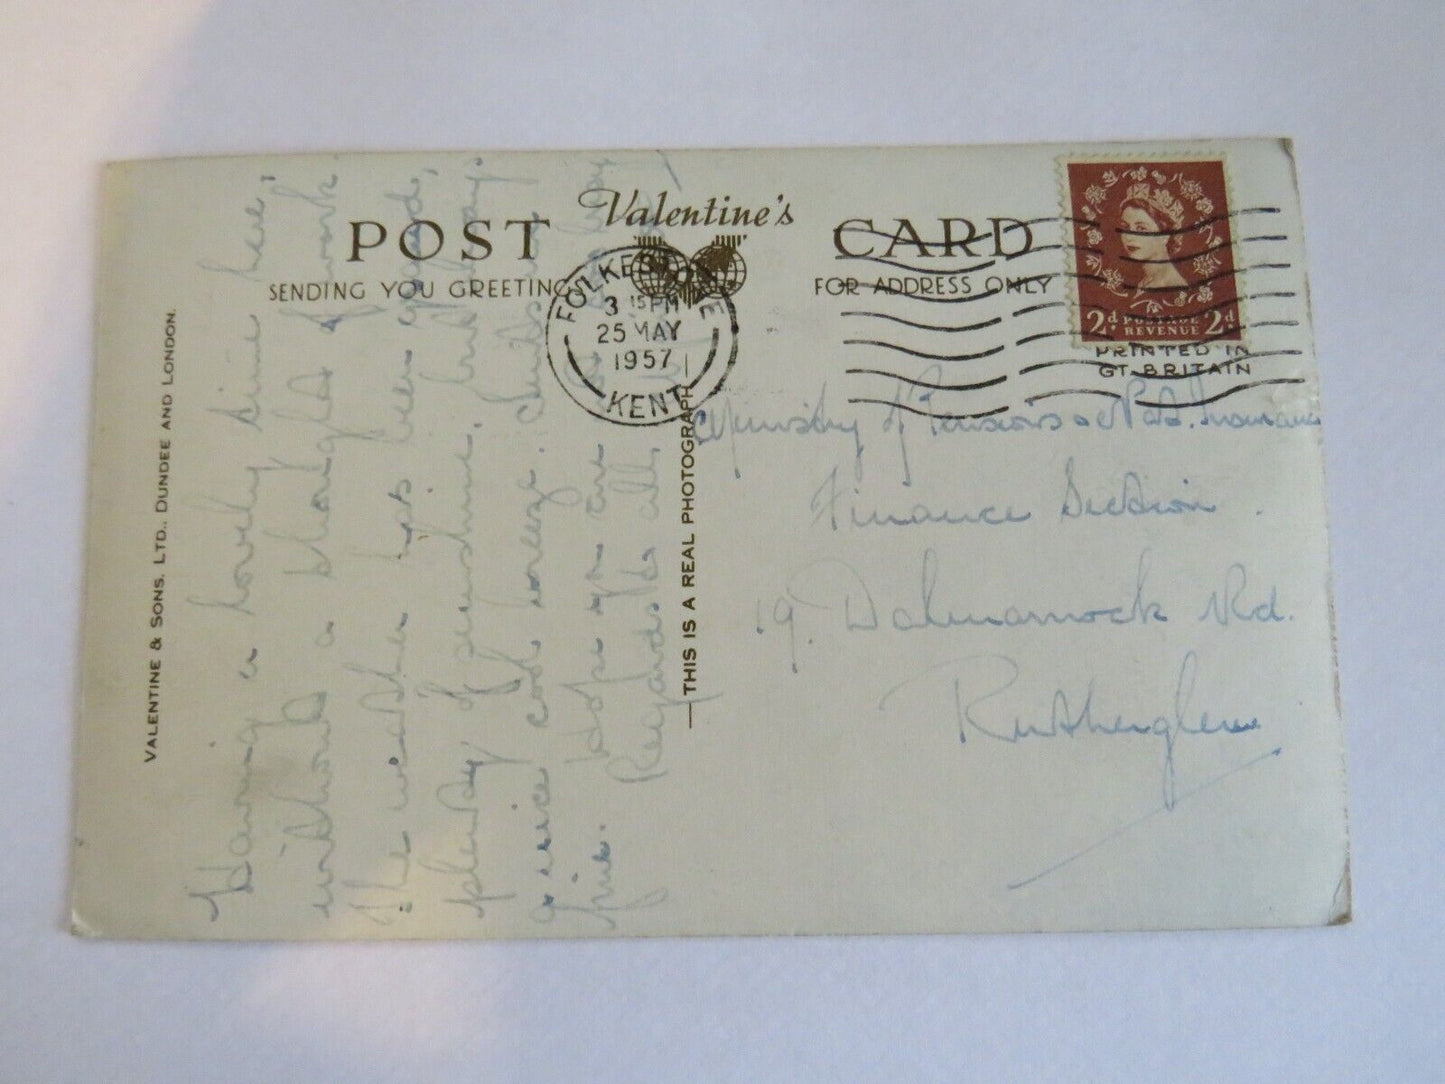 POST Valentine's CARD
SENDING YOU GREETINGS
FOR ADDRESS ONLY
PRINTED IN
GT. BRITAIN
2d POSTAGE REVENUE 2d
FOLKESTONE
3 15PM
25 MAY
1957
KENT
VALENTINE & SONS, LTD., DUNDEE AND LONDON.
THIS IS A REAL PHOTOGRAPH
Having a lovely time here,
without a thought of work
The weather has been good,
plenty of sunshine, but today.
a nice cool breeze. Suits my
Hope you are
Regards to all,
Ministry of Pensions & Nat. Insurance
Finance Section.
19. Dalmarnock Rd.
Rutherglen